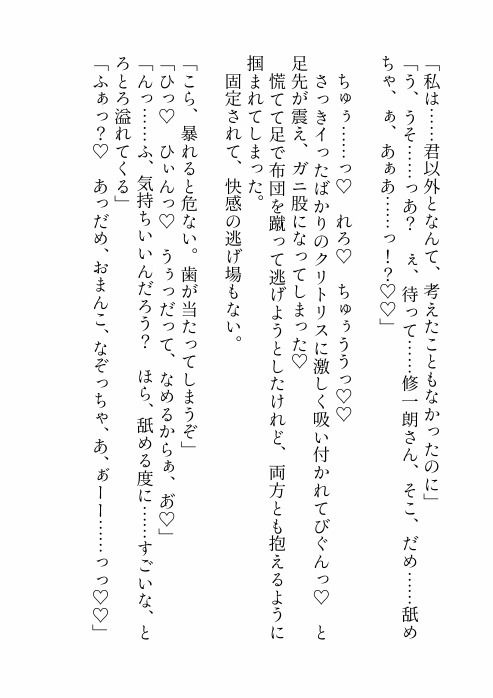 「私は……君以外となんて、考えたこともなかったのに」
「う、うそ……っあ？　ぇ、待って……修一朗さん、そこ、だめ……舐め
ちゃ、ぁ、あぁあ……っ！？♡♡」
ちゅぅ……っ♡　れろ♡　ちゅぅううっ♡♡
さっきイったばかりのクリトリスに激しく吸い付かれてびぐんっ♡　と
足先が震え、ガニ股になってしまった♡
慌てて足で布団を蹴って逃げようとしたけれど、両方とも抱えるように
掴まれてしまった。
固定されて、快感の逃げ場もない。
「こら、暴れると危ない。歯が当たってしまうぞ」
「ひっ♡　ひぃんっ♡　うぅっだって、なめるからぁ、あ゛♡」
「んっ……ふ、気持ちいいんだろう？　ほら、舐める度に……すごいな、と
ろとろ溢れてくる」
「ふぁっ？♡　あっだめ、おまんこ、なぞっちゃ、あ、ぁ゛ーー……っっ♡♡」